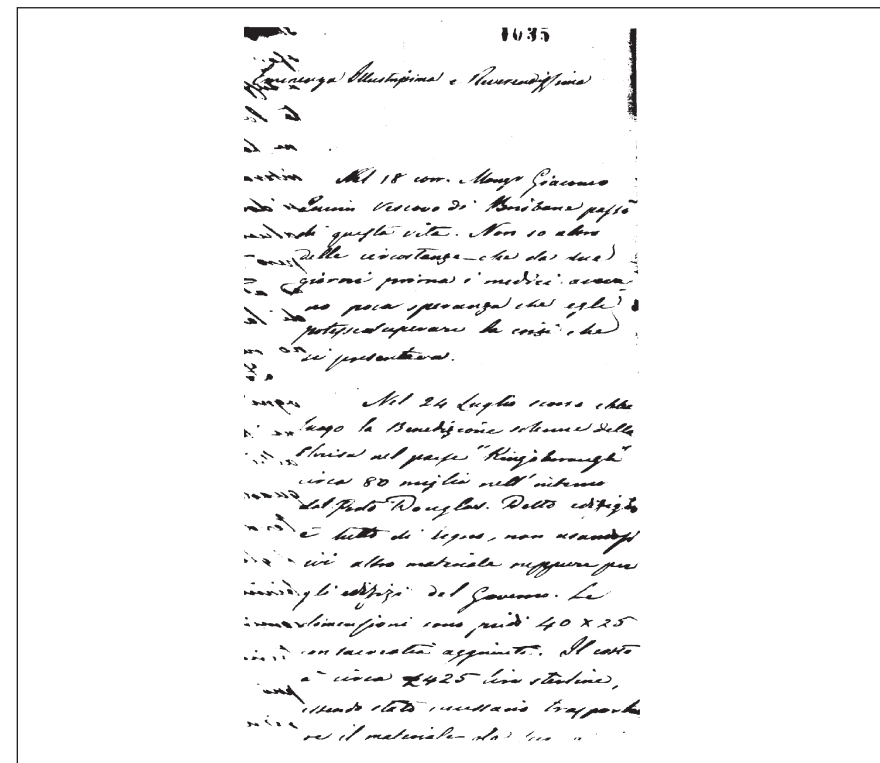 1035
Eminenza Illustrissima e Reverendissima
Nel 18 corr. Monsr Giacomo
Quinn Vescovo di Brisbane passò
di questa vita. Non so altro
delle circostanze che da due
giorni prima i medici aveva
no poca speranza che egli
potesse superare la crisi che
si presentava.
Nel 24 Luglio scorso ebbe
luogo la Benedizione solenne della
Chiesa nel paese "Kingsborough"
circa 80 miglia nell' interno
dal Porto Douglas. Detto edifizio
è tutto di legno, non usandosi
ivi altro materiale neppure per
gli edifizi del Governo. Le
dimensioni sono piedi 40 x 25
con sacrestia aggiunta. Il costo
è circa £425 lire sterline,
essendo stato necessario trasporta
re il materiale da